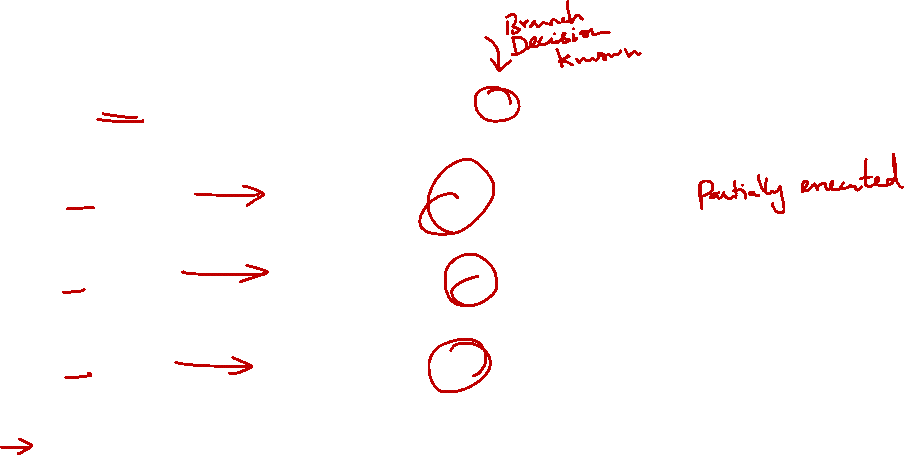 Branch
Decision
known
Partially executed